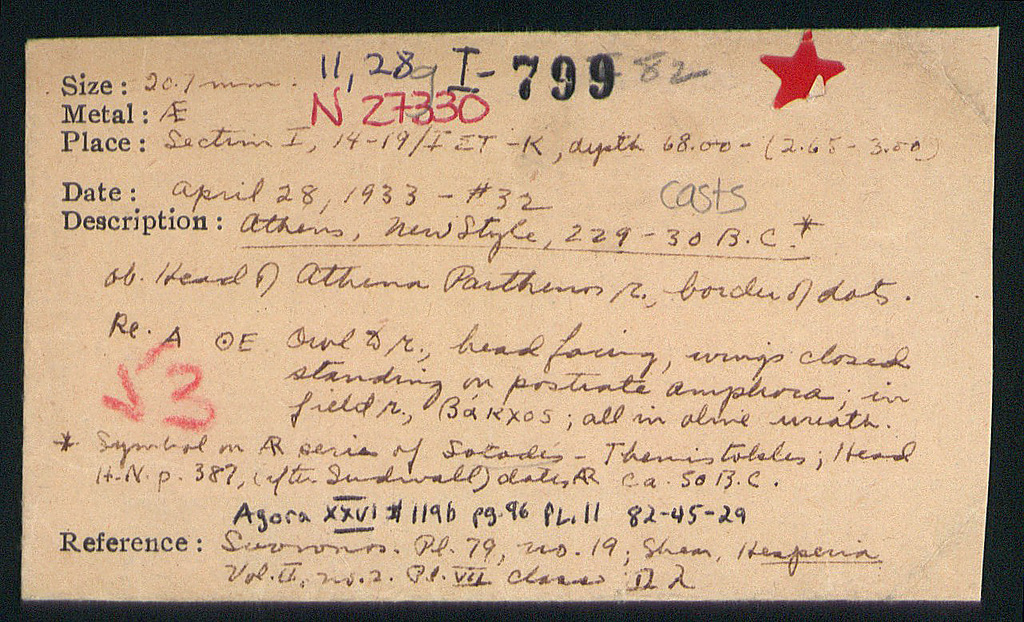 11, 28 I- 799 82
Size: 20.7 mm.
N 27330
Metal: Æ
Place: Section I, 14-19/I ET-K, depth 68.00 - (2.65 - 3.00)
Date: April 28, 1933 - #32
casts
Description: Athens, New Style, 229-30 B.C.*
ob. Head of Athena Parthenos r., border of dots.
Re. A ΘE Owl to r., head facing, wings closed
standing on postrate amphora; in
field r., Bákxos; all in olive wreath.
√3
* Symbol on AR series of Sotades - Themistokles; Head
H.N. p. 387, (after Sundwall) dates AR ca. 50 B.C.
Agora XXVI # 119b pg. 96 PL. 11 82-45-29
Reference: Svoronos. Pl. 79, no. 19; Shear, Hesperia
Vol. II, no. 2. Pl. VII class